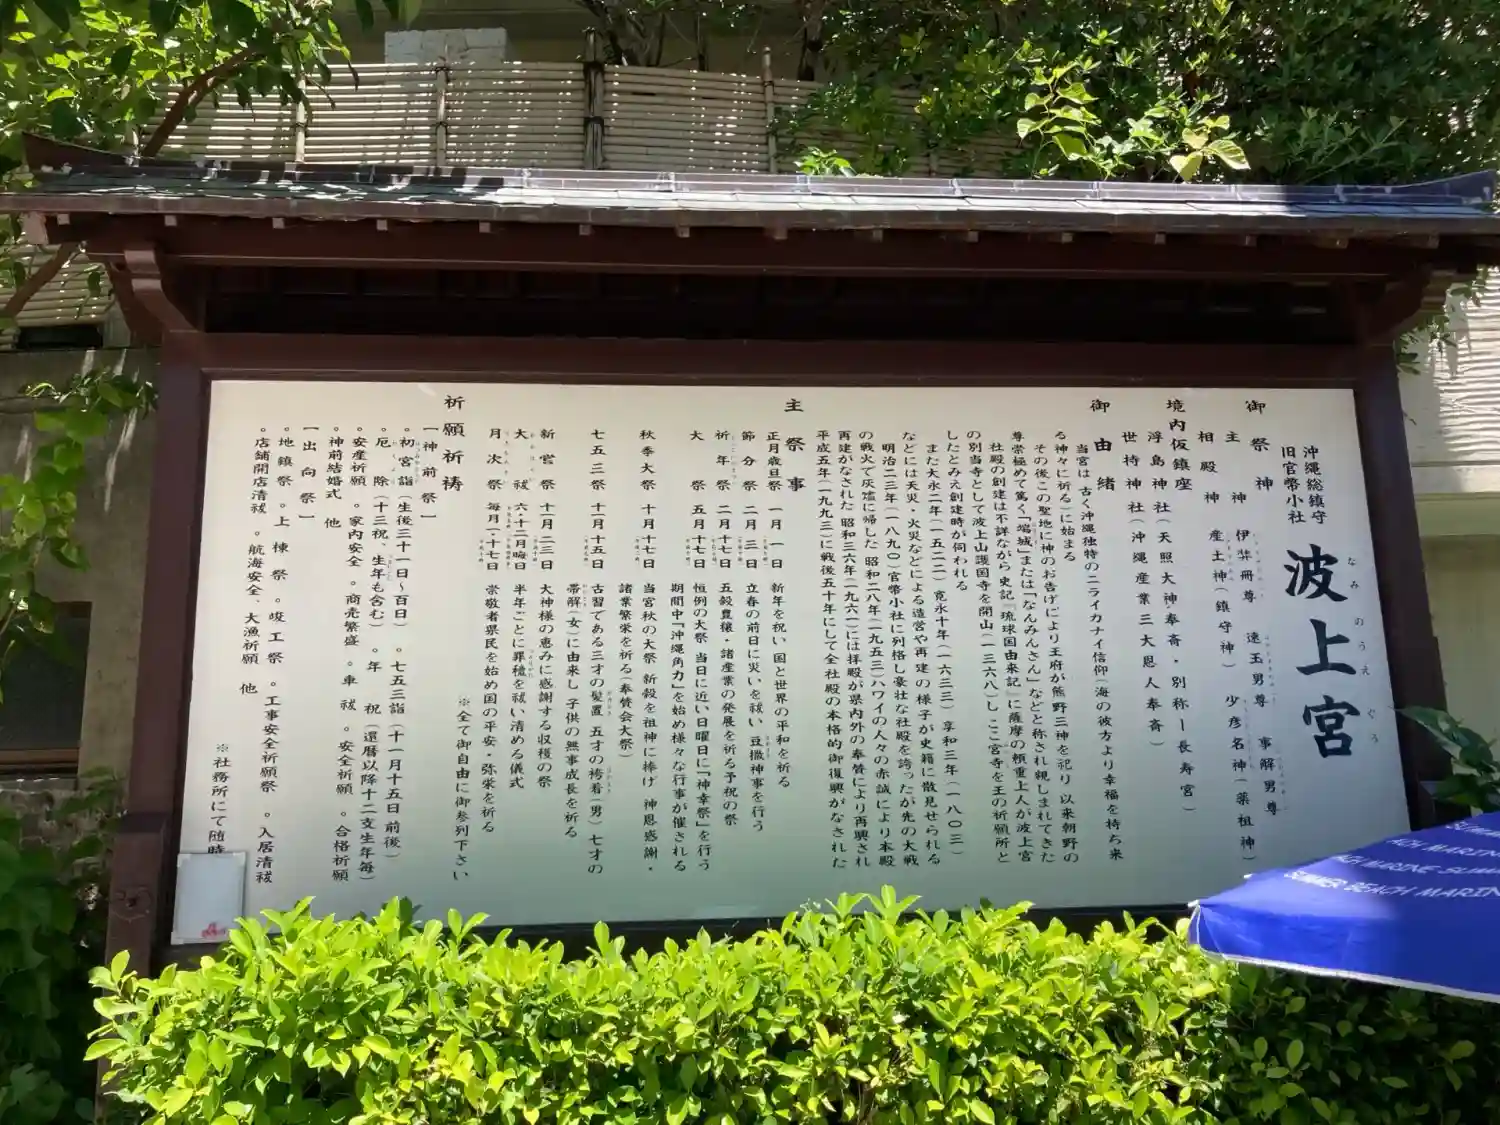 沖縄総鎮守
旧官幣小社
波上宮
なみのうえぐう
御祭神
主神 伊弉冊尊 速玉男尊 事解男尊
相殿神 産土神(鎮守神) 少彦名神(薬祖神)
境内仮鎮座
浮島神社(天照大神奉斎・別称ー長寿宮)
世持神社(沖縄産業三大恩人奉斎)
御由緒
当宮は、古く沖縄独特のニライカナイ信仰(海の彼方より幸福を持ち来
る神々に祈る)に始まる
その後この聖地に神のお告げにより王府が熊野三神を祀り 以来朝野の
尊崇極めて篤く「端城」または「なんみんさん」などと称され親しまれてきた
社殿の創建は不詳ながら 史記『琉球国由来記』に薩摩の頼重上人が波上宮
の別当寺として波上山護国寺を開山(一三六八)し ここ宮寺を王の祈願所と
したとみえ創建時が伺われる
また大永二年(一五二二) 寛永十年(一六三三) 享和三年(一八〇三)
などには天災・火災などによる造営や再建の様子が史籍に散見せられる
明治二三年(一八九〇)官幣小社に列格し豪壮な社殿を誇ったが先の大戦
の戦火で灰燼に帰した 昭和二八年(一九五三)ハワイの人々の赤誠により本殿
再建がなされた 昭和三六年(一九六一)には拝殿が県内外の奉賛により再興され
平成五年(一九九三)に戦後五十年にして全社殿の本格的御復興がなされた
主祭事
正月歳旦祭 一月一日 新年を祝い、国と世界の平和を祈る
節分祭 二月三日 立春の前日に災いを祓い 豆撒神事を行う
祈年祭 二月十七日 五穀豊穣・諸産業の発展を祈る予祝の祭
大祭 五月十七日 恒例の大祭 当日に近い日曜日に「神幸祭」を行う
期間中「沖縄角力」を始め様々な行事が催される
秋季大祭 十月十七日 当宮秋の大祭 新穀を祖神に捧げ 神恩感謝・
諸業繁栄を祈る(奉賛会大祭)
七五三祭 十一月十五日 古習である三才の髪置 五才の袴着(男) 七才の
帯解(女)に由来し 子供の無事成長を祈る
新宮祭 十一月二三日 大神様の恵みに感謝する収穫の祭
大祓 六・十二月晦日 半年ごとに罪穢を祓い清める儀式
月次祭 毎月一・十七日 崇敬者県民を始め国の平安・弥栄を祈る
※全て御自由に御参列下さい
祈願祈祷
【神前祭】
。初宮詣(生後三十一日~百日) 。七五三詣(十一月十五日前後)
。厄除(十三祝、生年も含む) 。年祝(還暦以降十二支生年毎)
。安産祈願 。家内安全 。商売繁盛 。車祓 。安全祈願 。合格祈願
。神前結婚式 他
【出向祭】
。地鎮祭 。上棟祭 。竣工祭 。工事安全祈願祭 。入居清祓
。店舗開店清祓 。航海安全、大漁祈願 他
※社務所にて随時
SUMMER BEACH MARINE